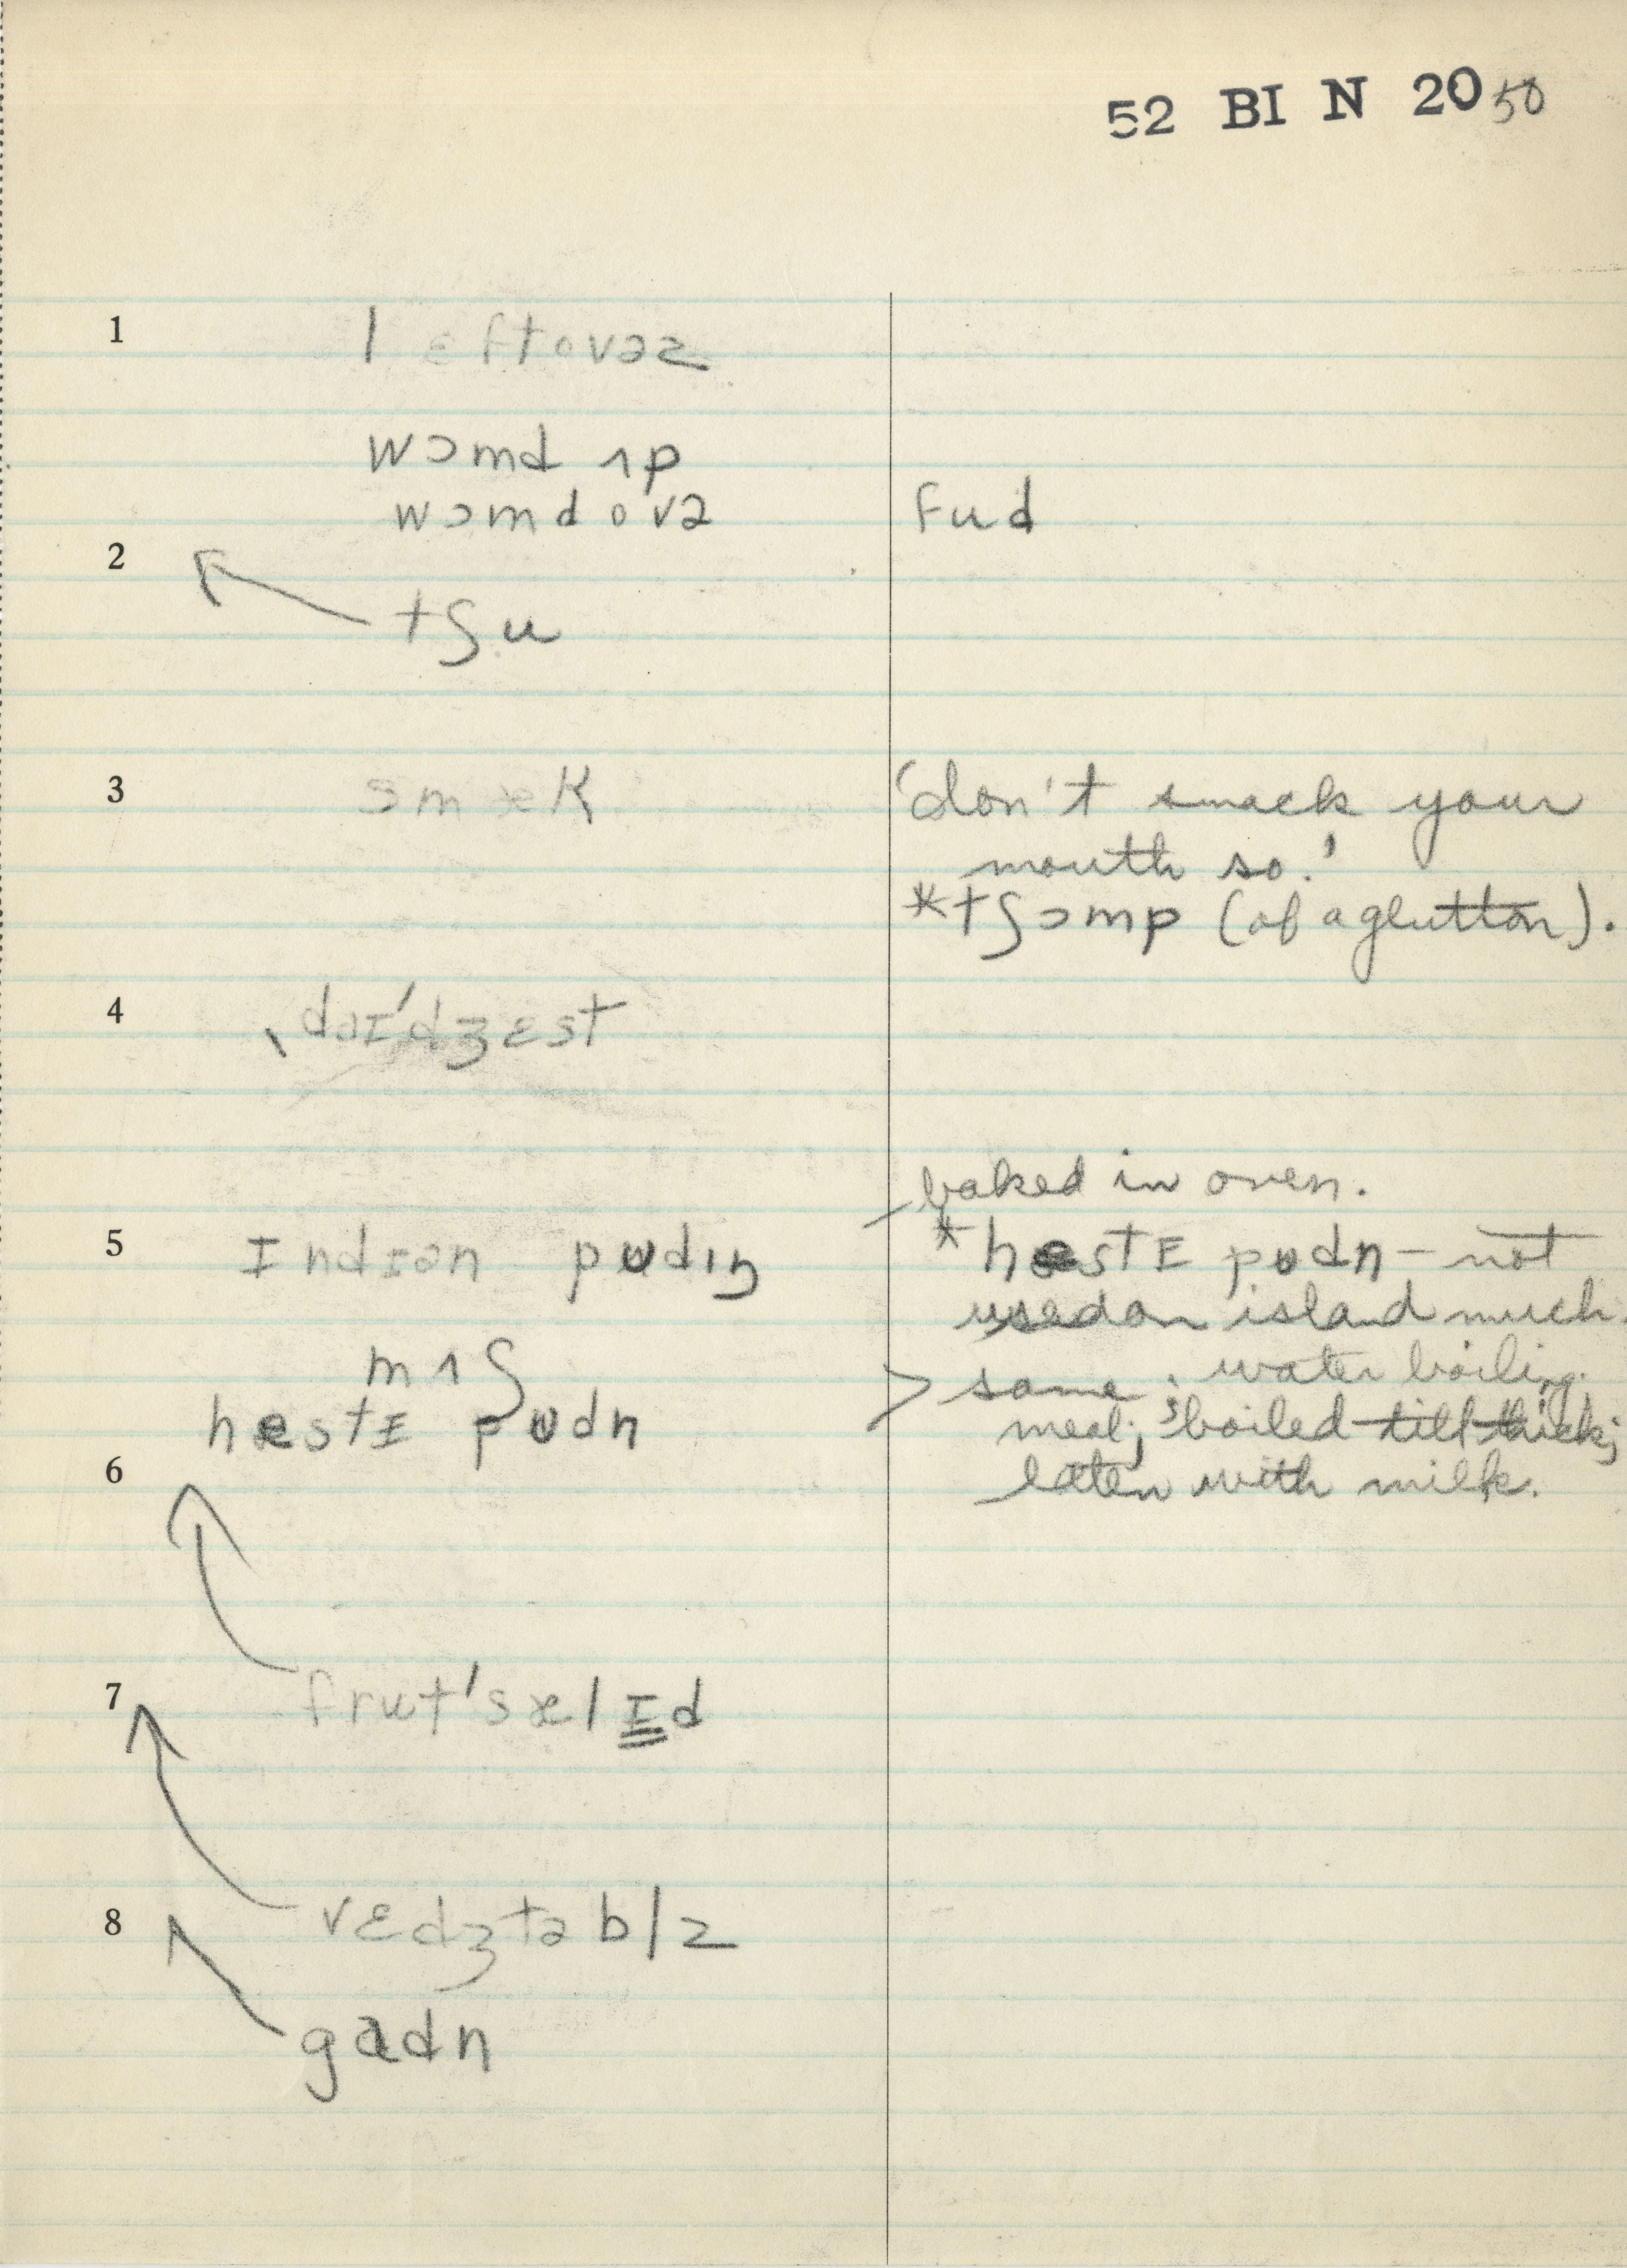 52 BI N 20 50
1 lɛftovəz
wɔmd ʌp
wɔmd ovə fud
2
tʃu
3 smæk 'don't smack your
mouth so!'
*tʃɔmp (of a glutton).
4 ˌdaɪ'dʒɛst
baked in oven.
5 Indɪən pʊdɪŋ *hestɪ pʊdn – not
used on island much.
mʌʃ > same; water boiling.
hestɪ pʊdn meal; boiled till thick;
6 eaten with milk.
7 frut'sælɪd
8 vɛdʒtəblz
gadn